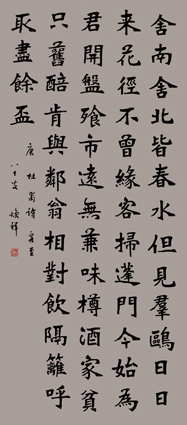 舍南舍北皆春水但見羣鷗日日
来花徑不曾緣客掃蓬門今始為
君開盤飧市遠無兼味樽酒家貧
只舊醅肯與鄰翁相對飲隔籬呼
取盡餘盃
唐杜甫詩客至
八十叟